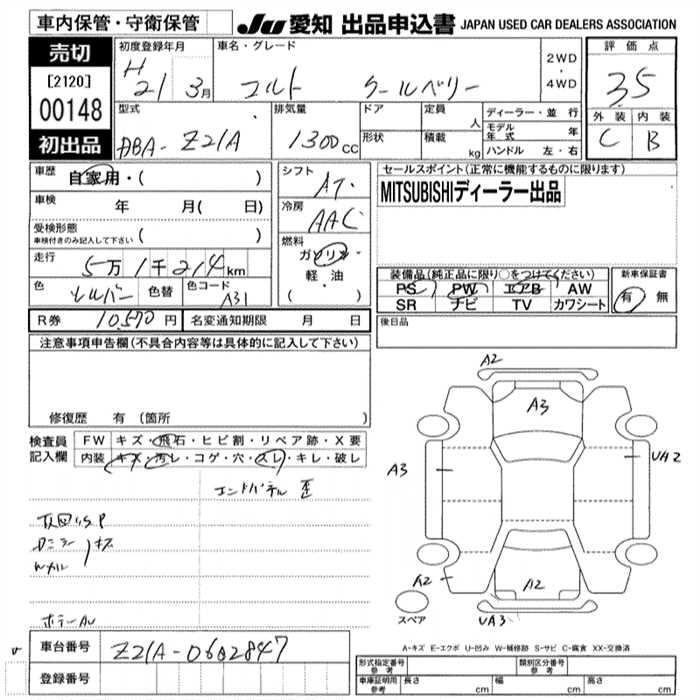 車内保管・守衛保管
JU 愛知 出品申込書 JAPAN USED CAR DEALERS ASSOCIATION
売切
[2120]
00148
初出品
初度登録年月
H 21 3月
車名・グレード
コルト クールベリー
2WD
・
4WD
評価点
3.5
外装 内装
C B
型式
DBA-Z21A
排気量
1300cc
ドア
形状
定員 人
積載 kg
ディーラー・並行
モデル年式 年
ハンドル 左・右
車歴
自家用・( )
車検 年 月( 日)
受検形態
車検付きのみ記入して下さい ( )
走行
5万1千214km
色
シルバー
色替
色コード
A31
R券 10,570円
名変通知期限 月 日
シフト
AT
冷房
AAC
燃料
ガソリン
軽油
( ・ )
セールスポイント(正常に機能するものに限ります)
MITSUBISHIディーラー出品
装備品(純正品に限り○をつけてください)
PS PW エアB AW
SR ナビ TV カワシート
新車保証書
有 無
後日品
注意事項申告欄(不具合内容等は具体的に記入して下さい)
修復歴 有(箇所 )
検査員
記入欄
FW キズ・飛石・ヒビ割・リペア跡・X要
内装 キズ・汚レ・コゲ・穴・スレ・キレ・破レ
エンドパネル 歪
キズ
A2
A3
A3
UA2
A2
A2
UA3
スペア
A-キズ E-エクボ U-凹み W-補修跡 S-サビ C-腐食 XX-交換済
車台番号 Z21A-0602847
登録番号
形式指定番号
参考
類別区分番号
参考
車庫証明用
参考
長さ cm
幅 cm
高さ cm